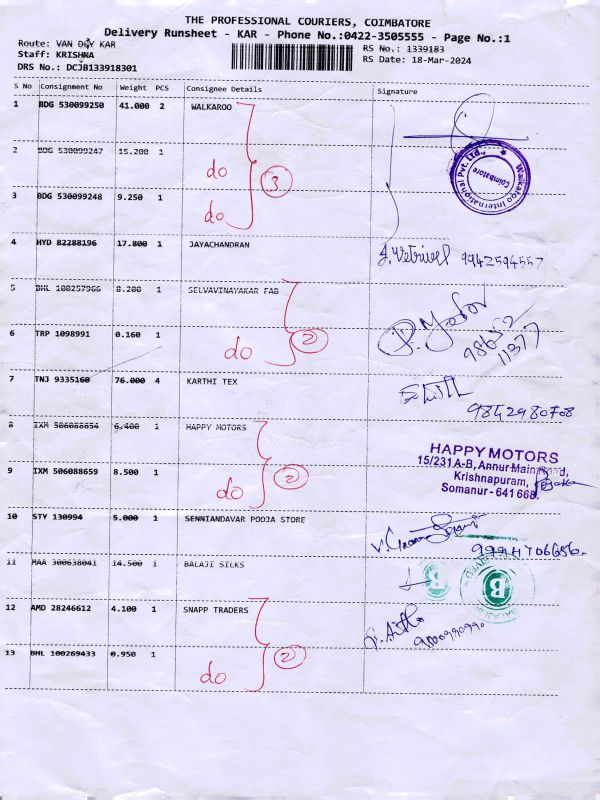 THE PROFESSIONAL COURIERS, COIMBATORE
Delivery Runsheet - KAR - Phone No.:0422-3505555 - Page No.:1
Route: VAN DEY KAR
RS No.: 1339183
Staff: KRISHNA
RS Date: 18-Mar-2024
DRS No.: DCJB133918301
S No Consignment No Weight PCS Consignee Details Signature
1 BDG 530099250 41.000 2 WALKAROO
2 BDG 530099247 15.200 1 do
3
Walkaroo International Pvt. Ltd., Coimbatore
3 BDG 530099248 9.250 1 do
4 HYD 82288196 17.800 1 JAYACHANDRAN J. Vetrivel 9942594557
5 BHL 100257966 8.200 1 SELVAVINAYAKAR FAB
6 TRP 1098991 0.160 1 do 2 98652 11377
7 TNJ 9335160 76.000 4 KARTHI TEX 9842980708
8 IXM 506088654 6.400 1 HAPPY MOTORS
HAPPY MOTORS
15/231 A-B, Annur Main Road,
Krishnapuram,
Somanur - 641 668.
9 IXM 506088659 8.500 1 do 2
10 STY 130994 5.000 1 SENNIANDAVAR POOJA STORE
11 MAA 300638041 14.500 1 BALAJI SILKS
B B
12 AMD 28246612 4.100 1 SNAPP TRADERS
13 BHL 100269433 0.950 1 do 2